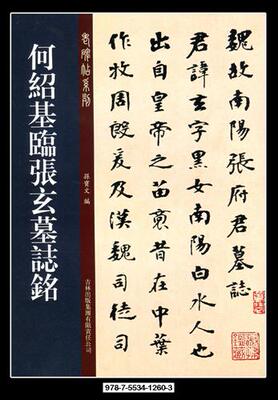 魏故南陽張府君墓誌
君諱玄字黑女南陽白水人也
出自皇帝之苗裔昔在中葉
作牧周殷爰及漢魏司徒司
老碑帖系列
何紹基臨張玄墓誌銘
孫寶文 編
吉林出版集團有限責任公司
978-7-5534-1260-3